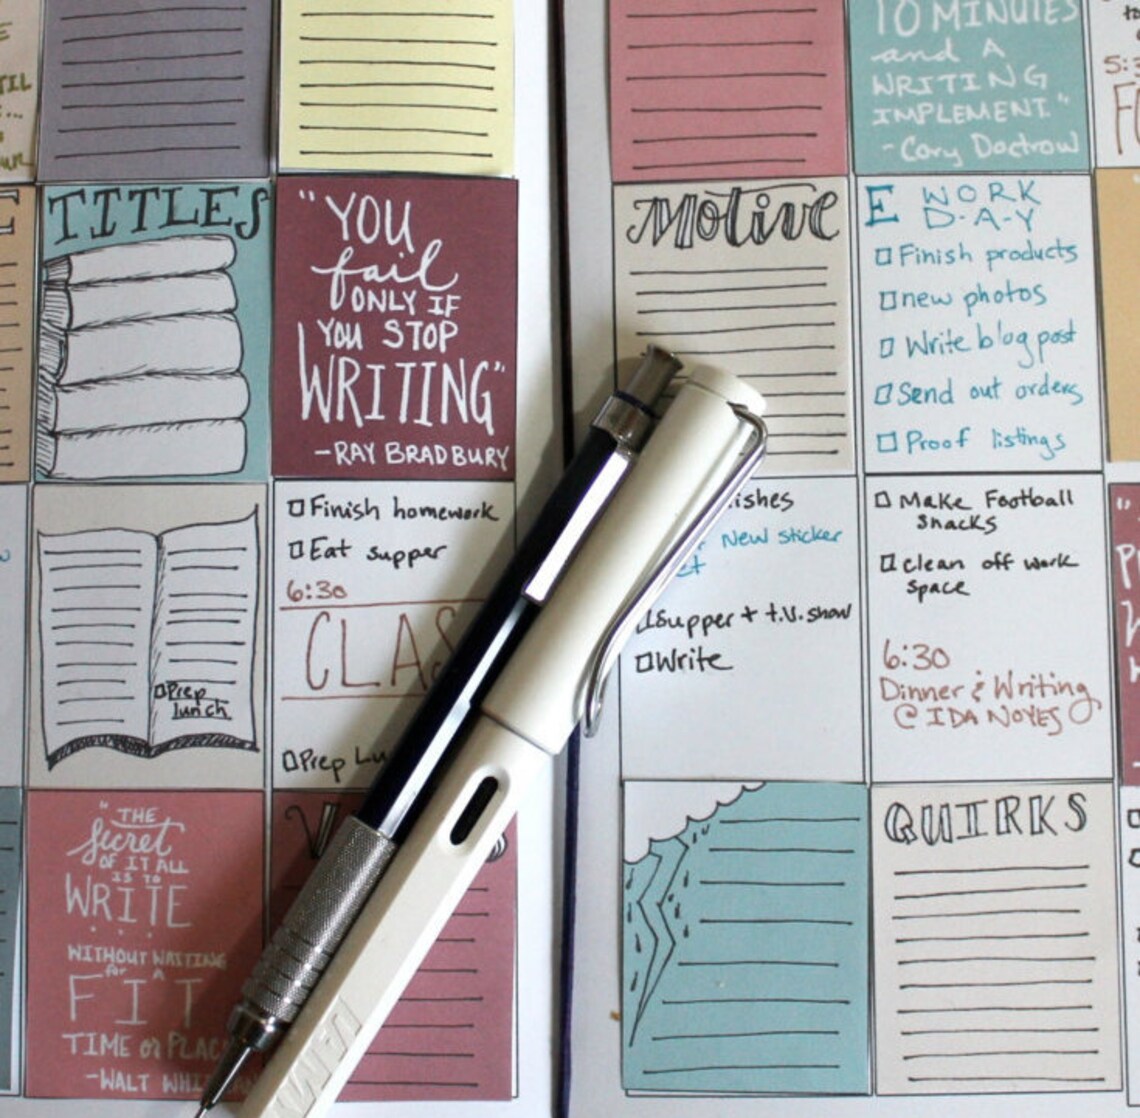 TIL
10 MINUTES
and A
WRITING
IMPLEMENT."
- Cory Doctrow
TITLES
"YOU
fail
ONLY IF
YOU STOP
WRITING"
-RAY BRADBURY
Motive
E WORK
D-A-Y
Finish products
new photos
Write blog post
Send out orders
Proof listings
Prep
lunch
Finish homework
Eat supper
6:30
CLAS
Prep Lu
ishes
New sticker
et
Supper + t.v. show
Write
Make Football
Snacks
clean off work
space
6:30
Dinner & Writing
@ IDA NOYES
"THE
Secret
OF IT ALL
IS TO
WRITE
...
WITHOUT WAITING
for A
FIT
TIME or PLAC
-WALT WHI
V
QUIRKS
LAM